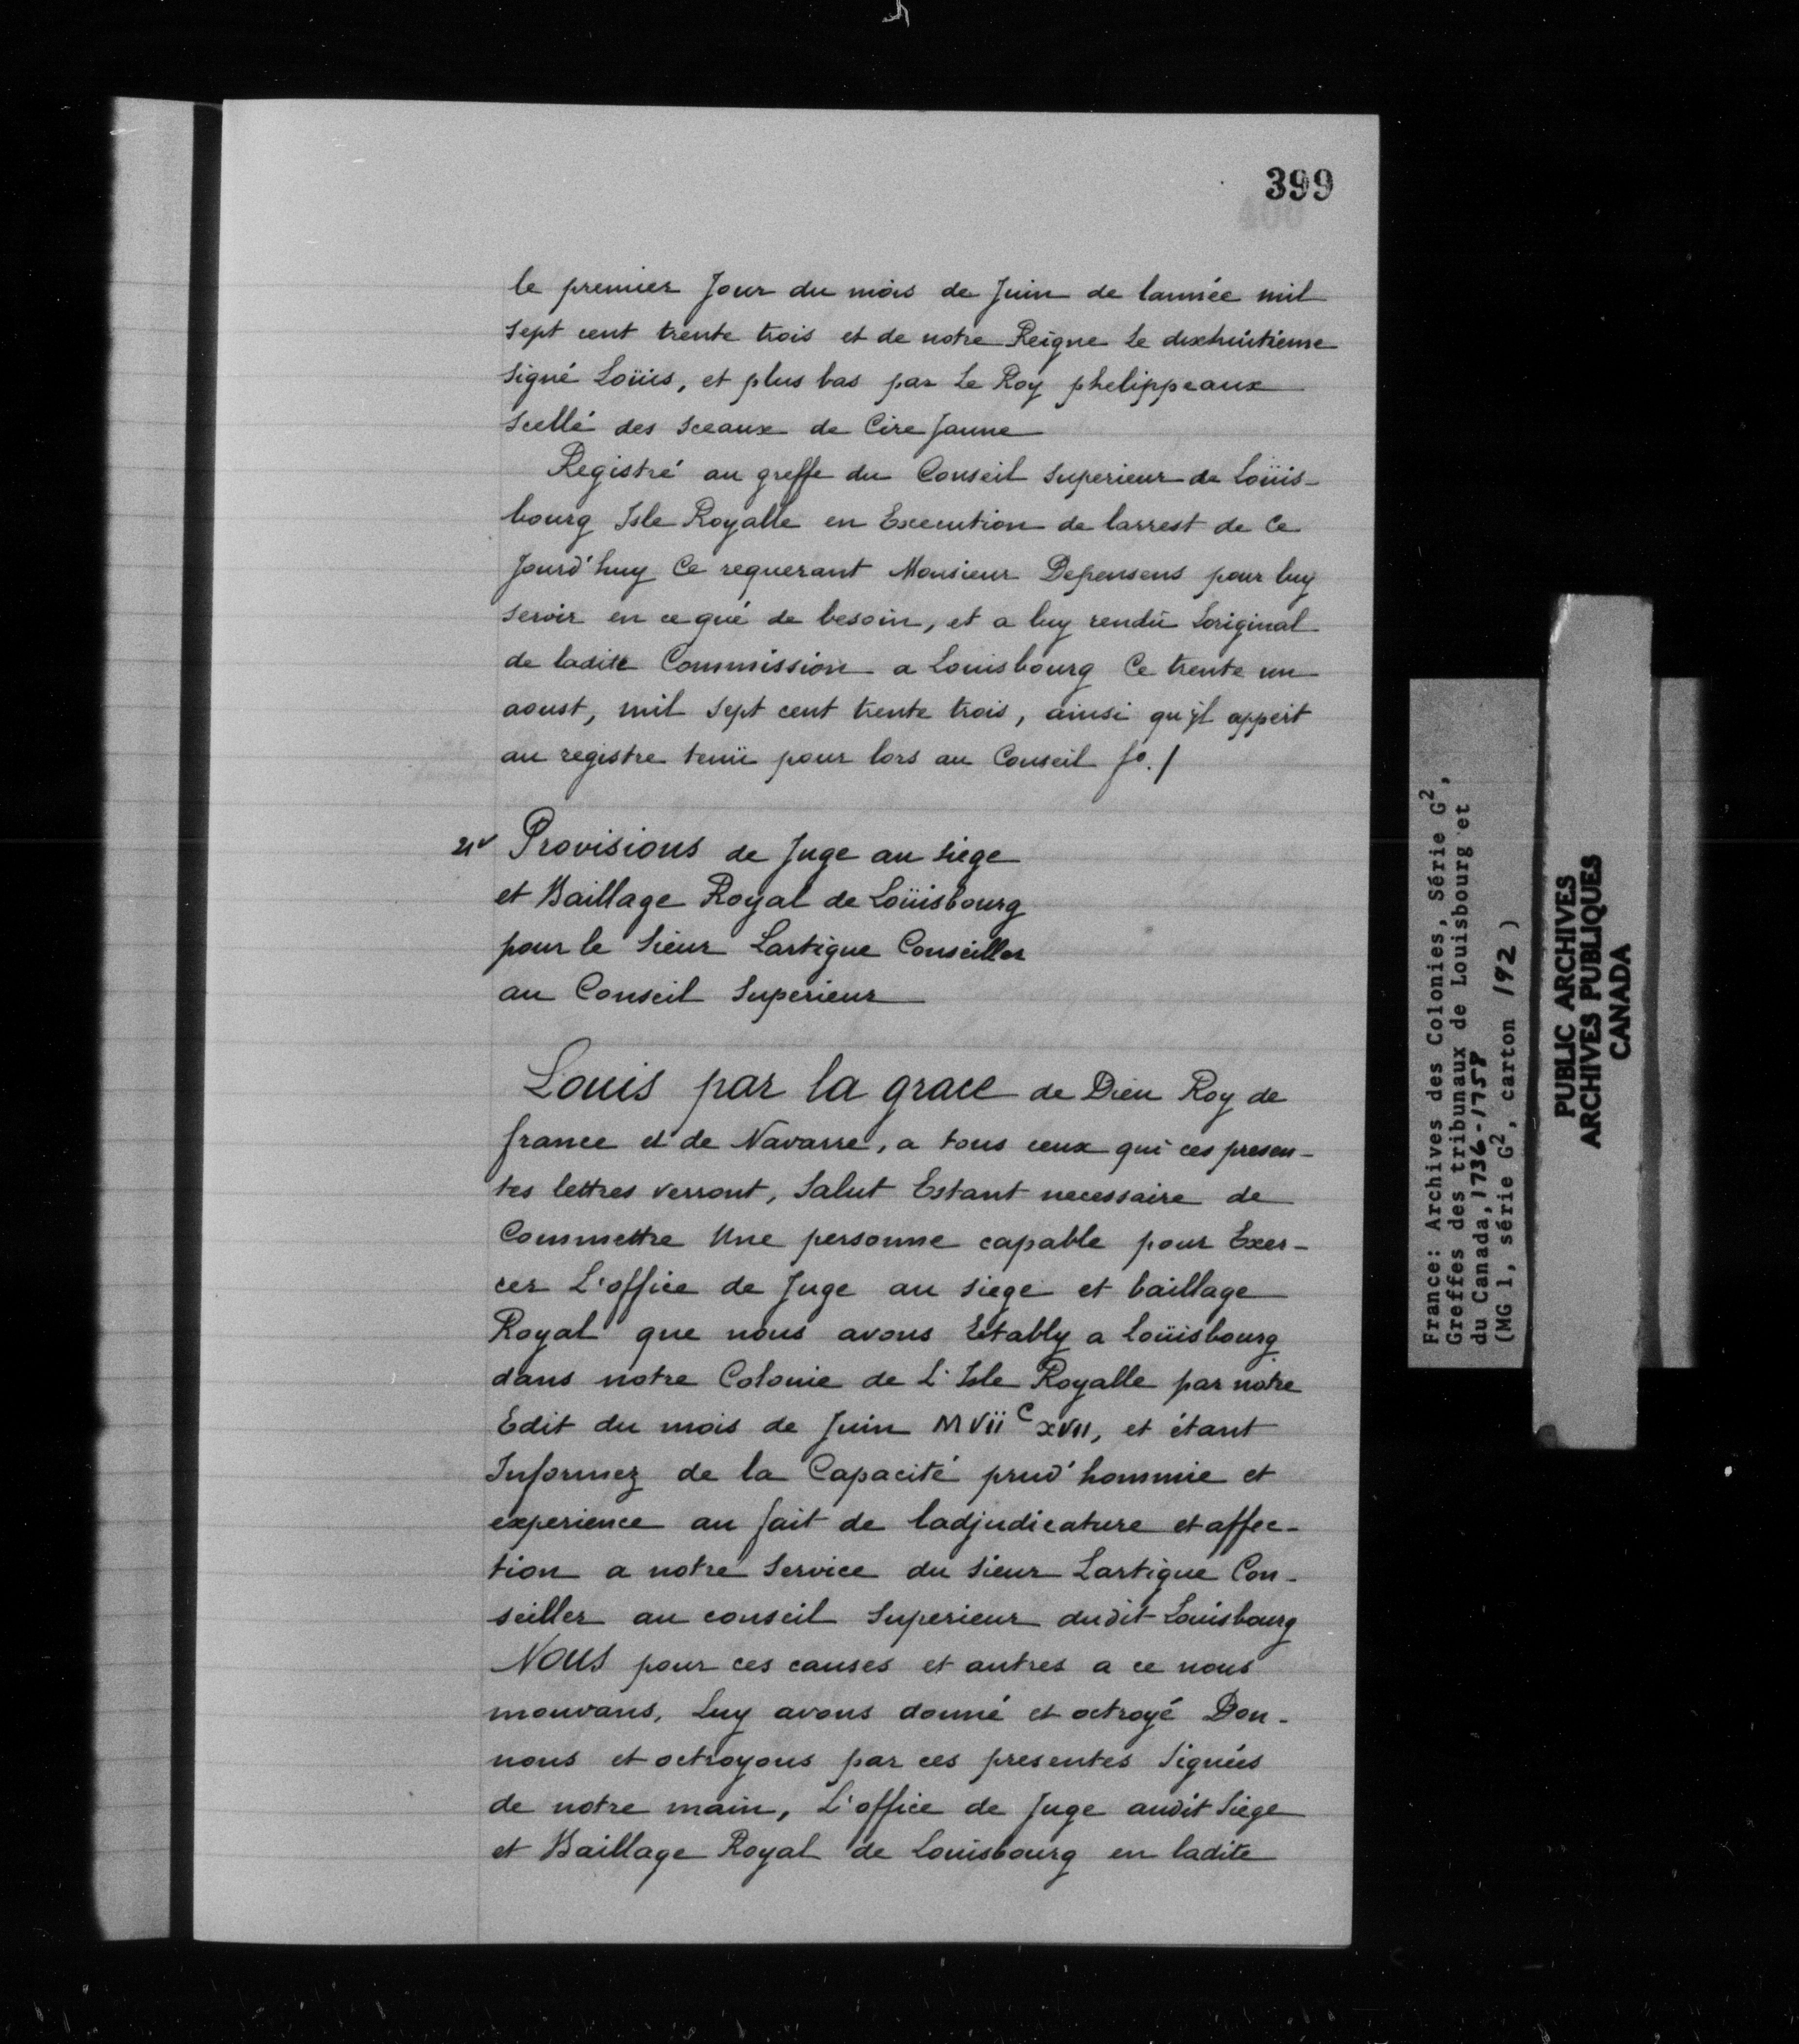 399
le premier Jour du mois de Juin de lannée mil
sept cent trente trois et de notre Reigne Le dixhuitieme
signé Loüis, et plus bas par Le Roy phelippeaux
scellé des sceaux de Cire Jaune
Registré au greffe du Conseil superieur de Loüis-
bourg Isle Royalle en Execution de larrest de Ce
Jourd'huy Ce requerant Monsieur Depensens pour luy
servir en ce que de besoin, et a luy rendü Loriginal
de ladite Commission a Louisbourg Ce trente un
aoust, mil sept cent trente trois, ainsi qu'jl appert
au registre tenü pour lors au Conseil fo. /
21v Provisions de Juge au siege
et Baillage Royal de Loüisbourg
pour le Sieur Lartigue Conseiller
au Conseil Superieur
Louis par la grace de Dieu Roy de
france et de Navarre, a tous ceux qui ces presen-
tes lettres verront, Salut Estant necessaire de
Commettre Une personne capable pour Exer-
cer L'office de Juge au siege et baillage
Royal que nous avons Etably a Loüisbourg
dans notre Colonie de L'Isle Royalle par notre
Edit du mois de Juin MVIIC XVII, et étant
Informez de la Capacité prud'hommie et
experience au fait de ladjudicature et affec-
tion a notre Service du sieur Lartigue Con-
seiller au conseil Superieur dudit Louisbourg
NOUS pour ces causes et autres a ce nous
mouvans, Luy avons donné et octroyé Don-
nous et octroyons par ces presentes Signées
de notre main, L'office de Juge audit Siege
et Baillage Royal de Louisbourg en ladite
France: Archives des Colonies, Série G2,
Greffes des tribunaux de Louisbourg et
du Canada, 1736-1758
(MG 1, série G2, carton 192)
PUBLIC ARCHIVES
ARCHIVES PUBLIQUES
CANADA